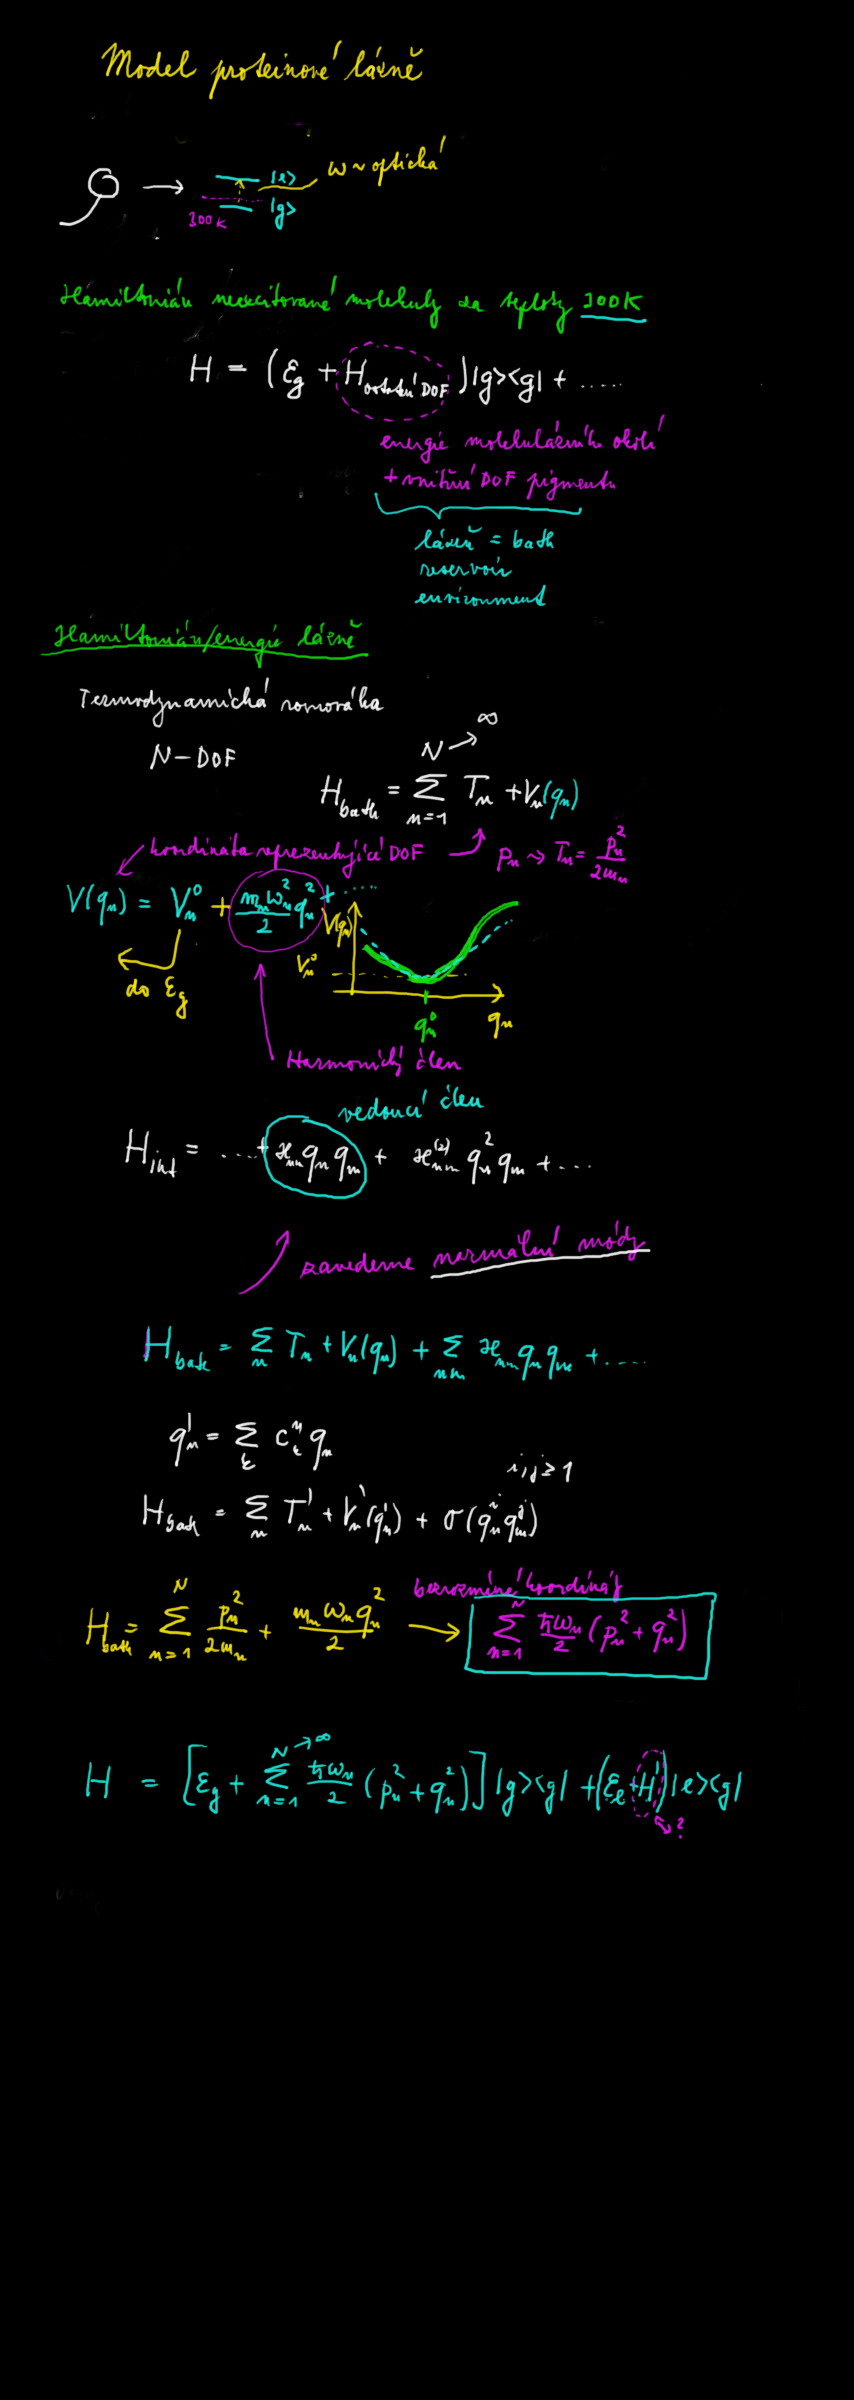 Model proteinové lázně
ω ~ optická
|e>
|g>
300K
Hamiltonián neexcitované molekuly za teploty 300K
H = (ε_g + H_ostatní DOF) |g><g| + .....
energie molekulárního okolí
+ vnitřní DOF pigmentu
lázeň = bath
reservoir
environment
Hamiltonián/energie lázně
Termodynamická rovnováha
N - DOF
H_bath = ∑_{n=1}^{N→∞} T_n + V_n(q_n)
koordináta reprezentující DOF
p_n → T_n = p_n^2 / 2m_n
V(q_n) = V_n^0 + m_n ω_n^2 / 2 q_n^2 + .....
do ε_g
V(q_n)
V_n^0
q_n^0
q_n
Harmonický člen
vedoucí člen
H_int = ....+ ϰ_nm q_n q_m + ϰ_nm^(2) q_n^2 q_m + ...
zavedeme normální módy
H_bath = ∑_n T_n + V_n(q_n) + ∑_nm ϰ_nm q_n q_m + ....
q_n' = ∑_k c_k^n q_n
i,j ≥ 1
H_bath = ∑_n T_n' + V_n'(q_n') + σ(q_n^i q_m^j)
bezrozměrné koordináty
H_bath = ∑_{n=1}^N p_n^2 / 2m_n + m_n ω_n q_n^2 / 2 → ∑_{n=1}^N ħω_n / 2 (p_n^2 + q_n^2)
H = [ε_g + ∑_{n=1}^{N→∞} ħω_n / 2 (p_n^2 + q_n^2)] |g><g| + (ε_e + H') |e><g|
?